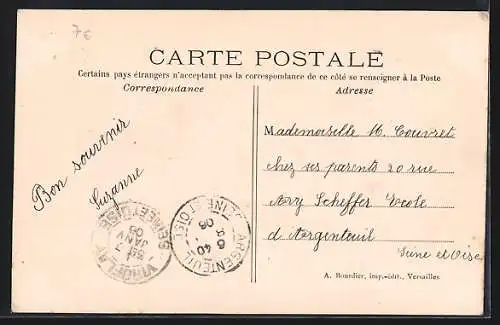 7€
CARTE POSTALE
Certains pays étrangers n'acceptant pas la correspondance de ce côté se renseigner à la Poste
Correspondance
Adresse
Bon souvenir
Suzanne
Mademoiselle M. Couvret
chez ses parents 20 rue
Ary Scheffer École
d'Argenteuil
Seine et Oise
VIROFLAY
JANV
05
ARGENTEUIL
SEINE ET OISE
6 40
05
A. Bourdier, imp.-édit., Versailles